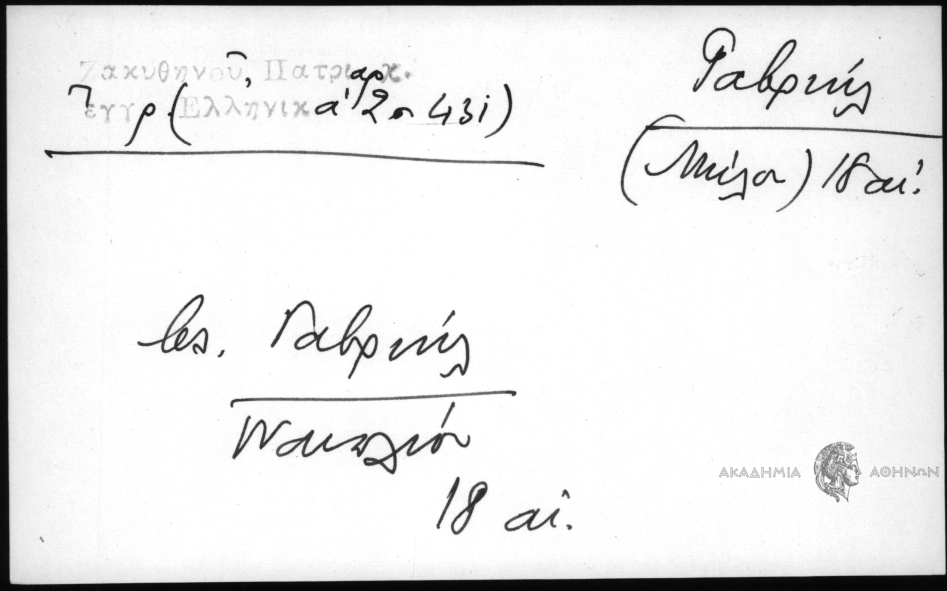 Ζακυθηνοῦ, Πατριαρχ.
ἔγγρ. (Ἑλληνικά 2 σ 431)
Γαβριήλ
(Μήλου) 18 αἰ.
βλ. Γαβριήλ
18 αἰ.
ΑΚΑΔΗΜΙΑ ΑΘΗΝΩΝ